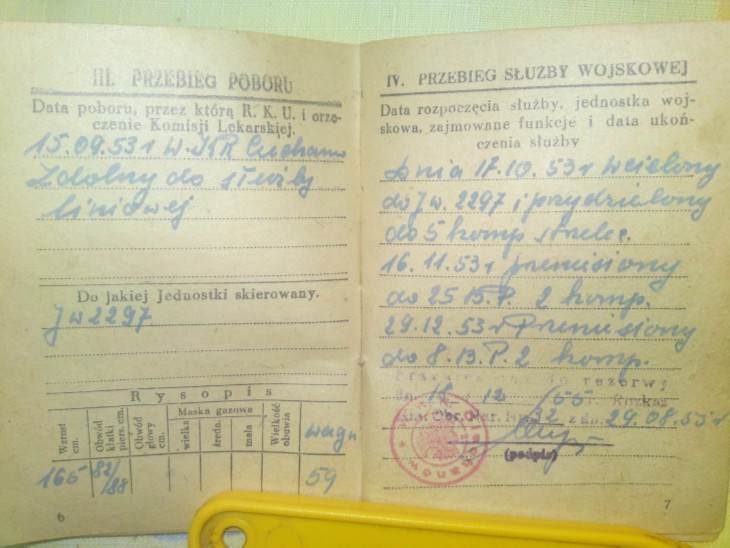 III. PRZEBIEG POBORU
Data poboru, przez którą R. K. U. i orze-
czenie Komisji Lekarskiej.
15.09.53 r W.
Zdolny do służby
liniowej
Do jakiej Jednostki skierowany.
Jw 2297
Rysopis
Wzrost cm.
Obwód klatki piers. cm.
Obwód głowy cm.
Maska gazowa
wielka
średn.
mała
Wielkość obuwia
waga
165
82/88
59
6
IV. PRZEBIEG SŁUŻBY WOJSKOWEJ
Data rozpoczęcia służby, jednostka woj-
skowa, zajmowane funkcje i data ukoń-
czenia służby
Dnia 17.10.53 r wcielony
do Jw. 2297 i przydzielony
do 5 komp strzelec.
16.11.53 r przeniesiony
do 25 B.P. 2 komp.
29.12.53 r Przeniesiony
do 8. B.P. 2 komp.
do rezerwy
18 12 /55 r. Rozkaz
32 z dn. 29.08.55 r
(podpis)
7